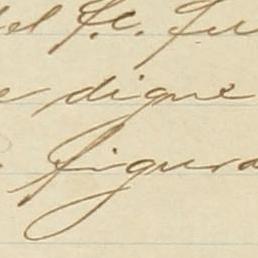 del f.c. fu
digne
figura